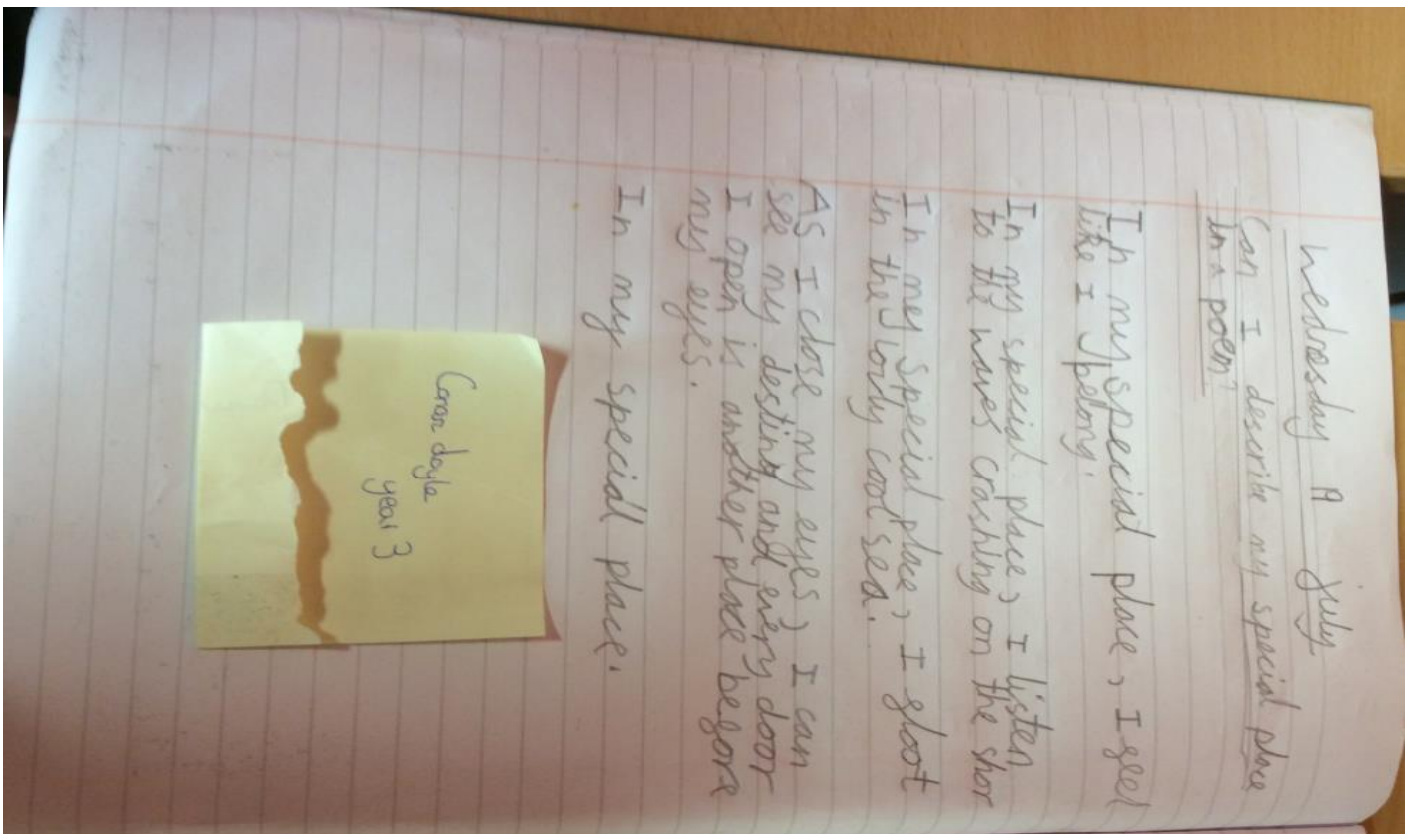 Wednesday 19 july
Can I describe my special place
in a poem?
In my special place, I feel
like I belong.
In my special place, I listen
to the waves crashing on the shor
In my special place, I float
in the lovly cool sea.
As I close my eyes, I can
see my destiny and every door
I open is another place before
my eyes.
In my special place.
doyle
year 3